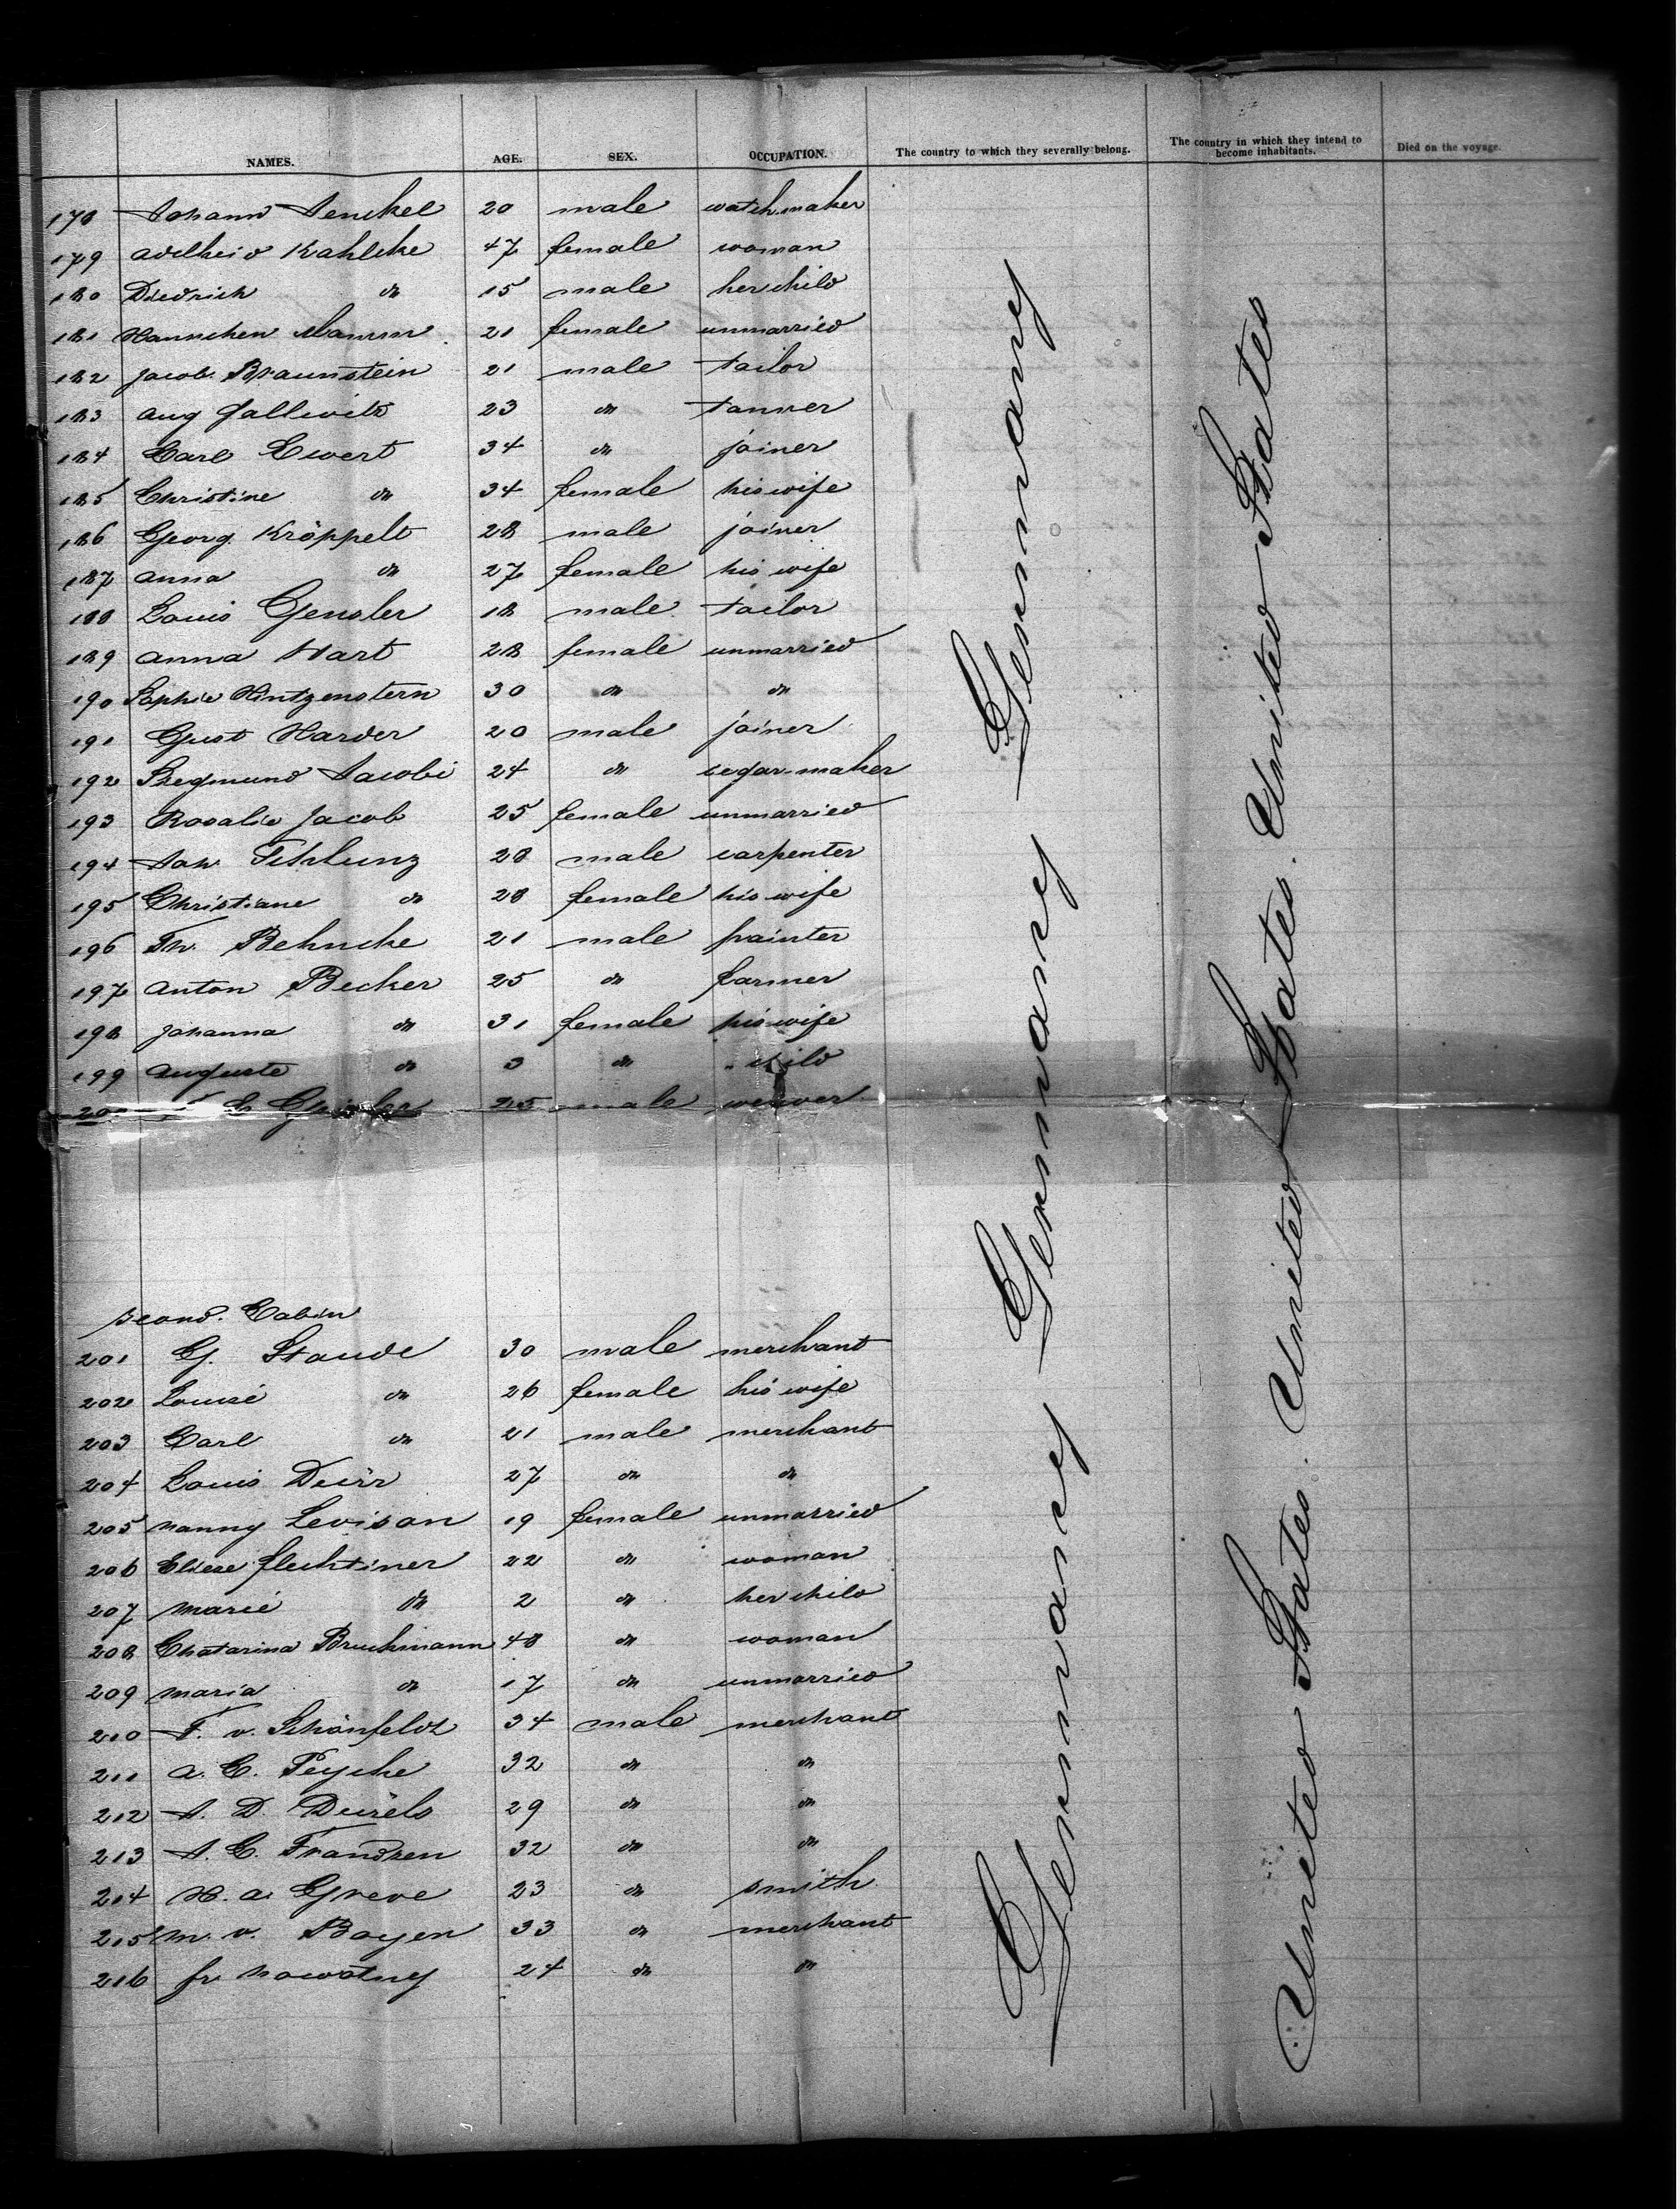 NAMES. AGE. SEX. OCCUPATION. The country to which they severally belong. The country in which they intend to become inhabitants. Died on the voyage.
178 Johann Jenckel 20 male watchmaker
179 Adelheid Kahlcke 47 female woman
180 Diedrich do 15 male her child
181 Hannchen 21 female unmarried
182 Jacob Braunstein 21 male tailor
183 Aug Gallwitz 23 do tanner
184 Carl Ewert 34 do joiner
185 Christine do 34 female his wife
186 Georg Kröppelt 28 male joiner
187 Anna do 27 female his wife
188 Louis Gensler 18 male tailor
189 Anna Hart 28 female unmarried
190 Sophie Hintzenstern 30 do do
191 Gust Harder 20 male joiner
192 Siegmund Jacobi 24 do segar-maker
193 Rosalie Jacob 25 female unmarried
194 Joh 28 male carpenter
195 Christiane do 28 female his wife
196 Th. Behncke 21 male painter
197 Anton Becker 25 do farmer
198 Johanna do 31 female his wife
199 Auguste do 3 do child
200 25 male weaver
Second. Cabin
201 G. Staude 30 male merchant
202 Louise do 26 female his wife
203 Carl do 21 male merchant
204 Louis Deürr 27 do do
205 Nanny Levison 19 female unmarried
206 Eliese Flechtiner 22 do woman
207 Marie do 2 do her child
208 Chatarina Bruchmann 48 do woman
209 Maria do 17 do unmarried
210 F. v. Schönfeldt 34 male merchant
211 A. C. Peycke 32 do do
212 J. D. 29 do do
213 J. C. Frandsen 32 do do
214 H. A. Greve 23 do smith
215 M. v. Boyen 33 do merchant
216 Fr. Nowotny 24 do do
Germany Germany Germany Germany
United States. United States. United States